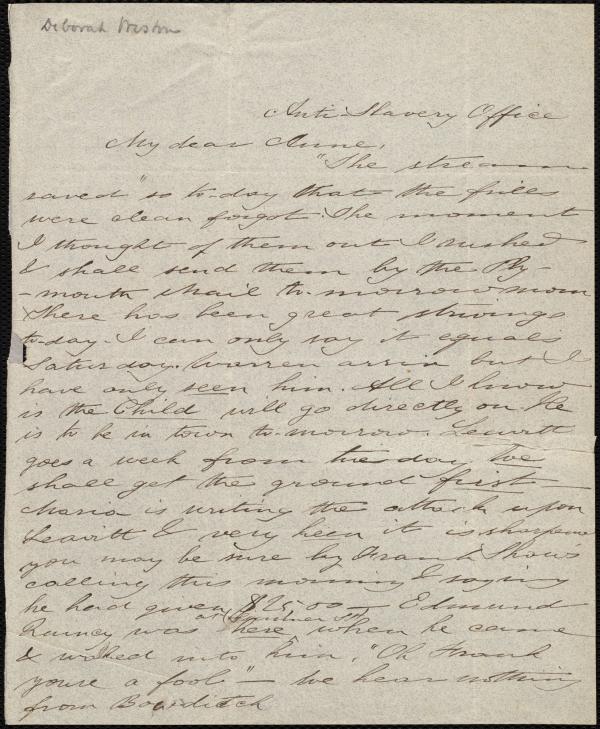 Deborah Weston
Anti-Slavery Office
My dear Anne,
"She stream
raved" so to-day that the frills
were clean forgot. The moment
I thought of them out I rushed
& shall send them by the Ply-
-mouth Mail to-morrow morn
There has been great strivings
to-day. I can only say it equals
Saturday. Warren arriv but I
have only seen him. All I know
is the Child will go directly on. He
is to be in town to-morrow. Leavitt
goes a week from to-day We
shall get the ground first
Maria is writing the attack upon
Leavitt & very keen it is sharpened
you may be sure by Frank Shaws
calling this morning & saying
he had given $25,00 — Edmund
Quincy was here when he came
at
& walked into him, "Oh Frank
youre a fool" — We hear nothing
from Bowditch